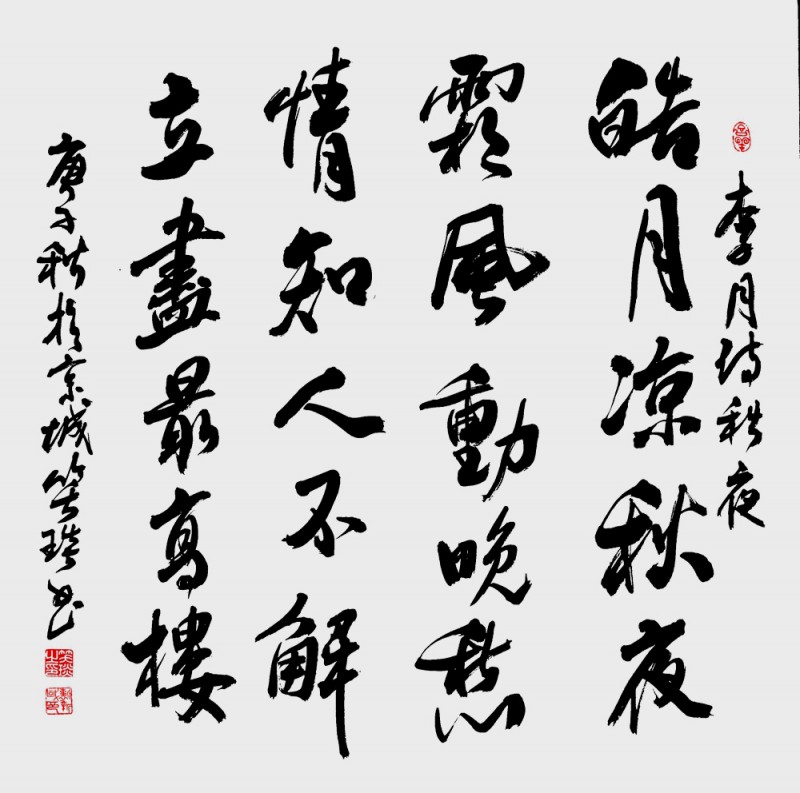 李月诗秋夜
皓月涼秋夜
霜風動晚愁
情知人不解
立盡最高樓
庚子秋於京城笑书